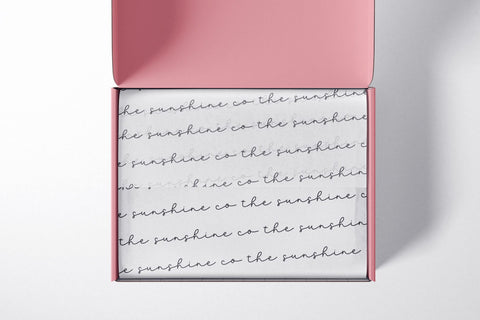 the sunshine co the sunshin
he sunshine co the sunshin
e sunshine co the sunshine c
sunshin
e sunshine co the sunshine c
the sunshine co the sunshin
e sunshine co the sunshine